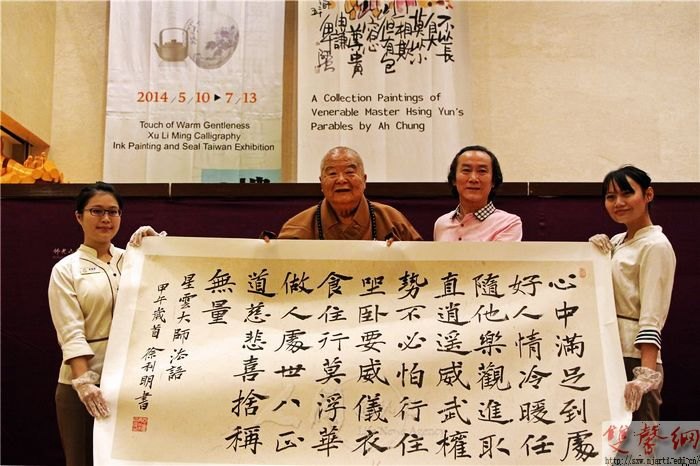 2014 / 5 / 10 ▶ 7 / 13
Touch of Warm Gentleness
Xu Li Ming Calligraphy
Ink Painting and Seal Taiwan Exhibition
A Collection Paintings of
Venerable Master Hsing Yun's
Parables by Ah Chung
心中滿足到處
好人情冷暖任
隨他樂觀進取
直逍遥威武權
勢不必怕行住
坐卧要威儀衣
食住行莫浮華
做人處世八正
道慈悲喜捨稱
無量
星雲大師法語
甲午歲首 徐利明書
雙聲網
http://sxw.njarti.edu.cn/